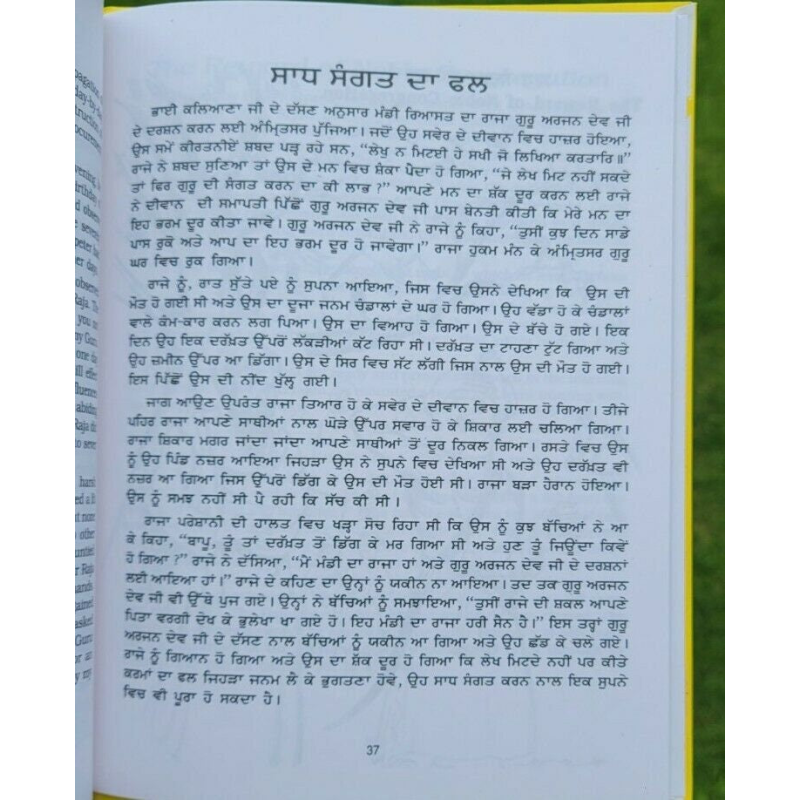 ਸਾਧ ਸੰਗਤ ਦਾ ਫਲ
ਭਾਈ ਕਲਿਆਣਾ ਜੀ ਦੇ ਦੱਸਣ ਅਨੁਸਾਰ ਮੰਡੀ ਰਿਆਸਤ ਦਾ ਰਾਜਾ ਗੁਰੂ ਅਰਜਨ ਦੇਵ ਜੀ
ਦੇ ਦਰਸ਼ਨ ਕਰਨ ਲਈ ਅੰਮ੍ਰਿਤਸਰ ਪੁੱਜਿਆ। ਜਦੋਂ ਉਹ ਸਵੇਰ ਦੇ ਦੀਵਾਨ ਵਿਚ ਹਾਜ਼ਰ ਹੋਇਆ,
ਉਸ ਸਮੇਂ ਕੀਰਤਨੀਏਂ ਸ਼ਬਦ ਪੜ੍ਹ ਰਹੇ ਸਨ, “ਲੇਖੁ ਨ ਮਿਟਈ ਹੇ ਸਖੀ ਜੋ ਲਿਖਿਆ ਕਰਤਾਰਿ॥”
ਰਾਜੇ ਨੇ ਸ਼ਬਦ ਸੁਣਿਆ ਤਾਂ ਉਸ ਦੇ ਮਨ ਵਿਚ ਸ਼ੰਕਾ ਪੈਦਾ ਹੋ ਗਿਆ, “ਜੇ ਲੇਖ ਮਿਟ ਨਹੀਂ ਸਕਦੇ
ਤਾਂ ਫਿਰ ਗੁਰੂ ਦੀ ਸੰਗਤ ਕਰਨ ਦਾ ਕੀ ਲਾਭ ?” ਆਪਣੇ ਮਨ ਦਾ ਸ਼ੱਕ ਦੂਰ ਕਰਨ ਲਈ ਰਾਜੇ
ਨੇ ਦੀਵਾਨ ਦੀ ਸਮਾਪਤੀ ਪਿੱਛੋਂ ਗੁਰੂ ਅਰਜਨ ਦੇਵ ਜੀ ਪਾਸ ਬੇਨਤੀ ਕੀਤੀ ਕਿ ਮੇਰੇ ਮਨ ਦਾ
ਇਹ ਭਰਮ ਦੂਰ ਕੀਤਾ ਜਾਵੇ। ਗੁਰੂ ਅਰਜਨ ਦੇਵ ਜੀ ਨੇ ਰਾਜੇ ਨੂੰ ਕਿਹਾ, “ਤੁਸੀਂ ਕੁਝ ਦਿਨ ਸਾਡੇ
ਪਾਸ ਰੁਕੋ ਅਤੇ ਆਪ ਦਾ ਇਹ ਭਰਮ ਦੂਰ ਹੋ ਜਾਵੇਗਾ।” ਰਾਜਾ ਹੁਕਮ ਮੰਨ ਕੇ ਅੰਮ੍ਰਿਤਸਰ ਗੁਰੂ
ਘਰ ਵਿਚ ਰੁਕ ਗਿਆ।
ਰਾਜੇ ਨੂੰ, ਰਾਤ ਸੁੱਤੇ ਪਏ ਨੂੰ ਸੁਪਨਾ ਆਇਆ, ਜਿਸ ਵਿਚ ਉਸਨੇ ਦੇਖਿਆ ਕਿ ਉਸ ਦੀ
ਮੌਤ ਹੋ ਗਈ ਸੀ ਅਤੇ ਉਸ ਦਾ ਦੂਜਾ ਜਨਮ ਚੰਡਾਲਾਂ ਦੇ ਘਰ ਹੋ ਗਿਆ। ਉਹ ਵੱਡਾ ਹੋ ਕੇ ਚੰਡਾਲਾਂ
ਵਾਲੇ ਕੰਮ-ਕਾਰ ਕਰਨ ਲਗ ਪਿਆ। ਉਸ ਦਾ ਵਿਆਹ ਹੋ ਗਿਆ। ਉਸ ਦੇ ਬੱਚੇ ਹੋ ਗਏ। ਇਕ
ਦਿਨ ਉਹ ਇਕ ਦਰਖ਼ਤ ਉੱਪਰੋਂ ਲੱਕੜੀਆਂ ਕੱਟ ਰਿਹਾ ਸੀ। ਦਰਖ਼ਤ ਦਾ ਟਾਹਣਾ ਟੁੱਟ ਗਿਆ ਅਤੇ
ਉਹ ਜ਼ਮੀਨ ਉੱਪਰ ਆ ਡਿੱਗਾ। ਉਸ ਦੇ ਸਿਰ ਵਿਚ ਸੱਟ ਲੱਗੀ ਜਿਸ ਨਾਲ ਉਸ ਦੀ ਮੌਤ ਹੋ ਗਈ।
ਇਸ ਪਿੱਛੋਂ ਉਸ ਦੀ ਨੀਂਦ ਖੁੱਲ੍ਹ ਗਈ।
ਜਾਗ ਆਉਣ ਉਪਰੰਤ ਰਾਜਾ ਤਿਆਰ ਹੋ ਕੇ ਸਵੇਰ ਦੇ ਦੀਵਾਨ ਵਿਚ ਹਾਜ਼ਰ ਹੋ ਗਿਆ। ਤੀਜੇ
ਪਹਿਰ ਰਾਜਾ ਆਪਣੇ ਸਾਥੀਆਂ ਨਾਲ ਘੋੜੇ ਉੱਪਰ ਸਵਾਰ ਹੋ ਕੇ ਸ਼ਿਕਾਰ ਲਈ ਚਲਿਆ ਗਿਆ।
ਰਾਜਾ ਸ਼ਿਕਾਰ ਮਗਰ ਜਾਂਦਾ ਜਾਂਦਾ ਆਪਣੇ ਸਾਥੀਆਂ ਤੋਂ ਦੂਰ ਨਿਕਲ ਗਿਆ। ਰਸਤੇ ਵਿਚ ਉਸ
ਨੂੰ ਉਹ ਪਿੰਡ ਨਜ਼ਰ ਆਇਆ ਜਿਹੜਾ ਉਸ ਨੇ ਸੁਪਨੇ ਵਿਚ ਦੇਖਿਆ ਸੀ ਅਤੇ ਉਹ ਦਰਖ਼ਤ ਵੀ
ਨਜ਼ਰ ਆ ਗਿਆ ਜਿਸ ਉੱਪਰੋਂ ਡਿੱਗ ਕੇ ਉਸ ਦੀ ਮੌਤ ਹੋਈ ਸੀ। ਰਾਜਾ ਬੜਾ ਹੈਰਾਨ ਹੋਇਆ।
ਉਸ ਨੂੰ ਸਮਝ ਨਹੀਂ ਸੀ ਪੈ ਰਹੀ ਕਿ ਸੱਚ ਕੀ ਸੀ।
ਰਾਜਾ ਪਰੇਸ਼ਾਨੀ ਦੀ ਹਾਲਤ ਵਿਚ ਖੜ੍ਹਾ ਸੋਚ ਰਿਹਾ ਸੀ ਕਿ ਉਸ ਨੂੰ ਕੁਝ ਬੱਚਿਆਂ ਨੇ ਆ
ਕੇ ਕਿਹਾ, “ਬਾਪੂ, ਤੂੰ ਤਾਂ ਦਰਖ਼ਤ ਤੋਂ ਡਿੱਗ ਕੇ ਮਰ ਗਿਆ ਸੀ ਅਤੇ ਹੁਣ ਤੂੰ ਜਿਉਂਦਾ ਕਿਵੇਂ
ਹੋ ਗਿਆ ?” ਰਾਜੇ ਨੇ ਦੱਸਿਆ, “ਮੈਂ ਮੰਡੀ ਦਾ ਰਾਜਾ ਹਾਂ ਅਤੇ ਗੁਰੂ ਅਰਜਨ ਦੇਵ ਜੀ ਦੇ ਦਰਸ਼ਨਾਂ
ਲਈ ਆਇਆ ਹਾਂ।” ਰਾਜੇ ਦੇ ਕਹਿਣ ਦਾ ਉਨ੍ਹਾਂ ਨੂੰ ਯਕੀਨ ਨਾ ਆਇਆ। ਤਦ ਤਕ ਗੁਰੂ ਅਰਜਨ
ਦੇਵ ਜੀ ਵੀ ਉੱਥੇ ਪੁਜ ਗਏ। ਉਨ੍ਹਾਂ ਨੇ ਬੱਚਿਆਂ ਨੂੰ ਸਮਝਾਇਆ, “ਤੁਸੀਂ ਰਾਜੇ ਦੀ ਸ਼ਕਲ ਆਪਣੇ
ਪਿਤਾ ਵਰਗੀ ਦੇਖ ਕੇ ਭੁਲੇਖਾ ਖਾ ਗਏ ਹੋ। ਇਹ ਮੰਡੀ ਦਾ ਰਾਜਾ ਹਰੀ ਸੈਨ ਹੈ।” ਇਸ ਤਰ੍ਹਾਂ ਗੁਰੂ
ਅਰਜਨ ਦੇਵ ਜੀ ਦੇ ਦੱਸਣ ਨਾਲ ਬੱਚਿਆਂ ਨੂੰ ਯਕੀਨ ਆ ਗਿਆ ਅਤੇ ਉਹ ਛੱਡ ਕੇ ਚਲੇ ਗਏ।
ਰਾਜੇ ਨੂੰ ਗਿਆਨ ਹੋ ਗਿਆ ਅਤੇ ਉਸ ਦਾ ਸ਼ੱਕ ਦੂਰ ਹੋ ਗਿਆ ਕਿ ਲੇਖ ਮਿਟਦੇ ਨਹੀਂ ਪਰ ਕੀਤੇ
ਕਰਮਾਂ ਦਾ ਫਲ ਜਿਹੜਾ ਜਨਮ ਲੈ ਕੇ ਭੁਗਤਣਾ ਹੋਵੇ, ਉਹ ਸਾਧ ਸੰਗਤ ਕਰਨ ਨਾਲ ਇਕ ਸੁਪਨੇ
ਵਿਚ ਵੀ ਪੂਰਾ ਹੋ ਸਕਦਾ ਹੈ।
37